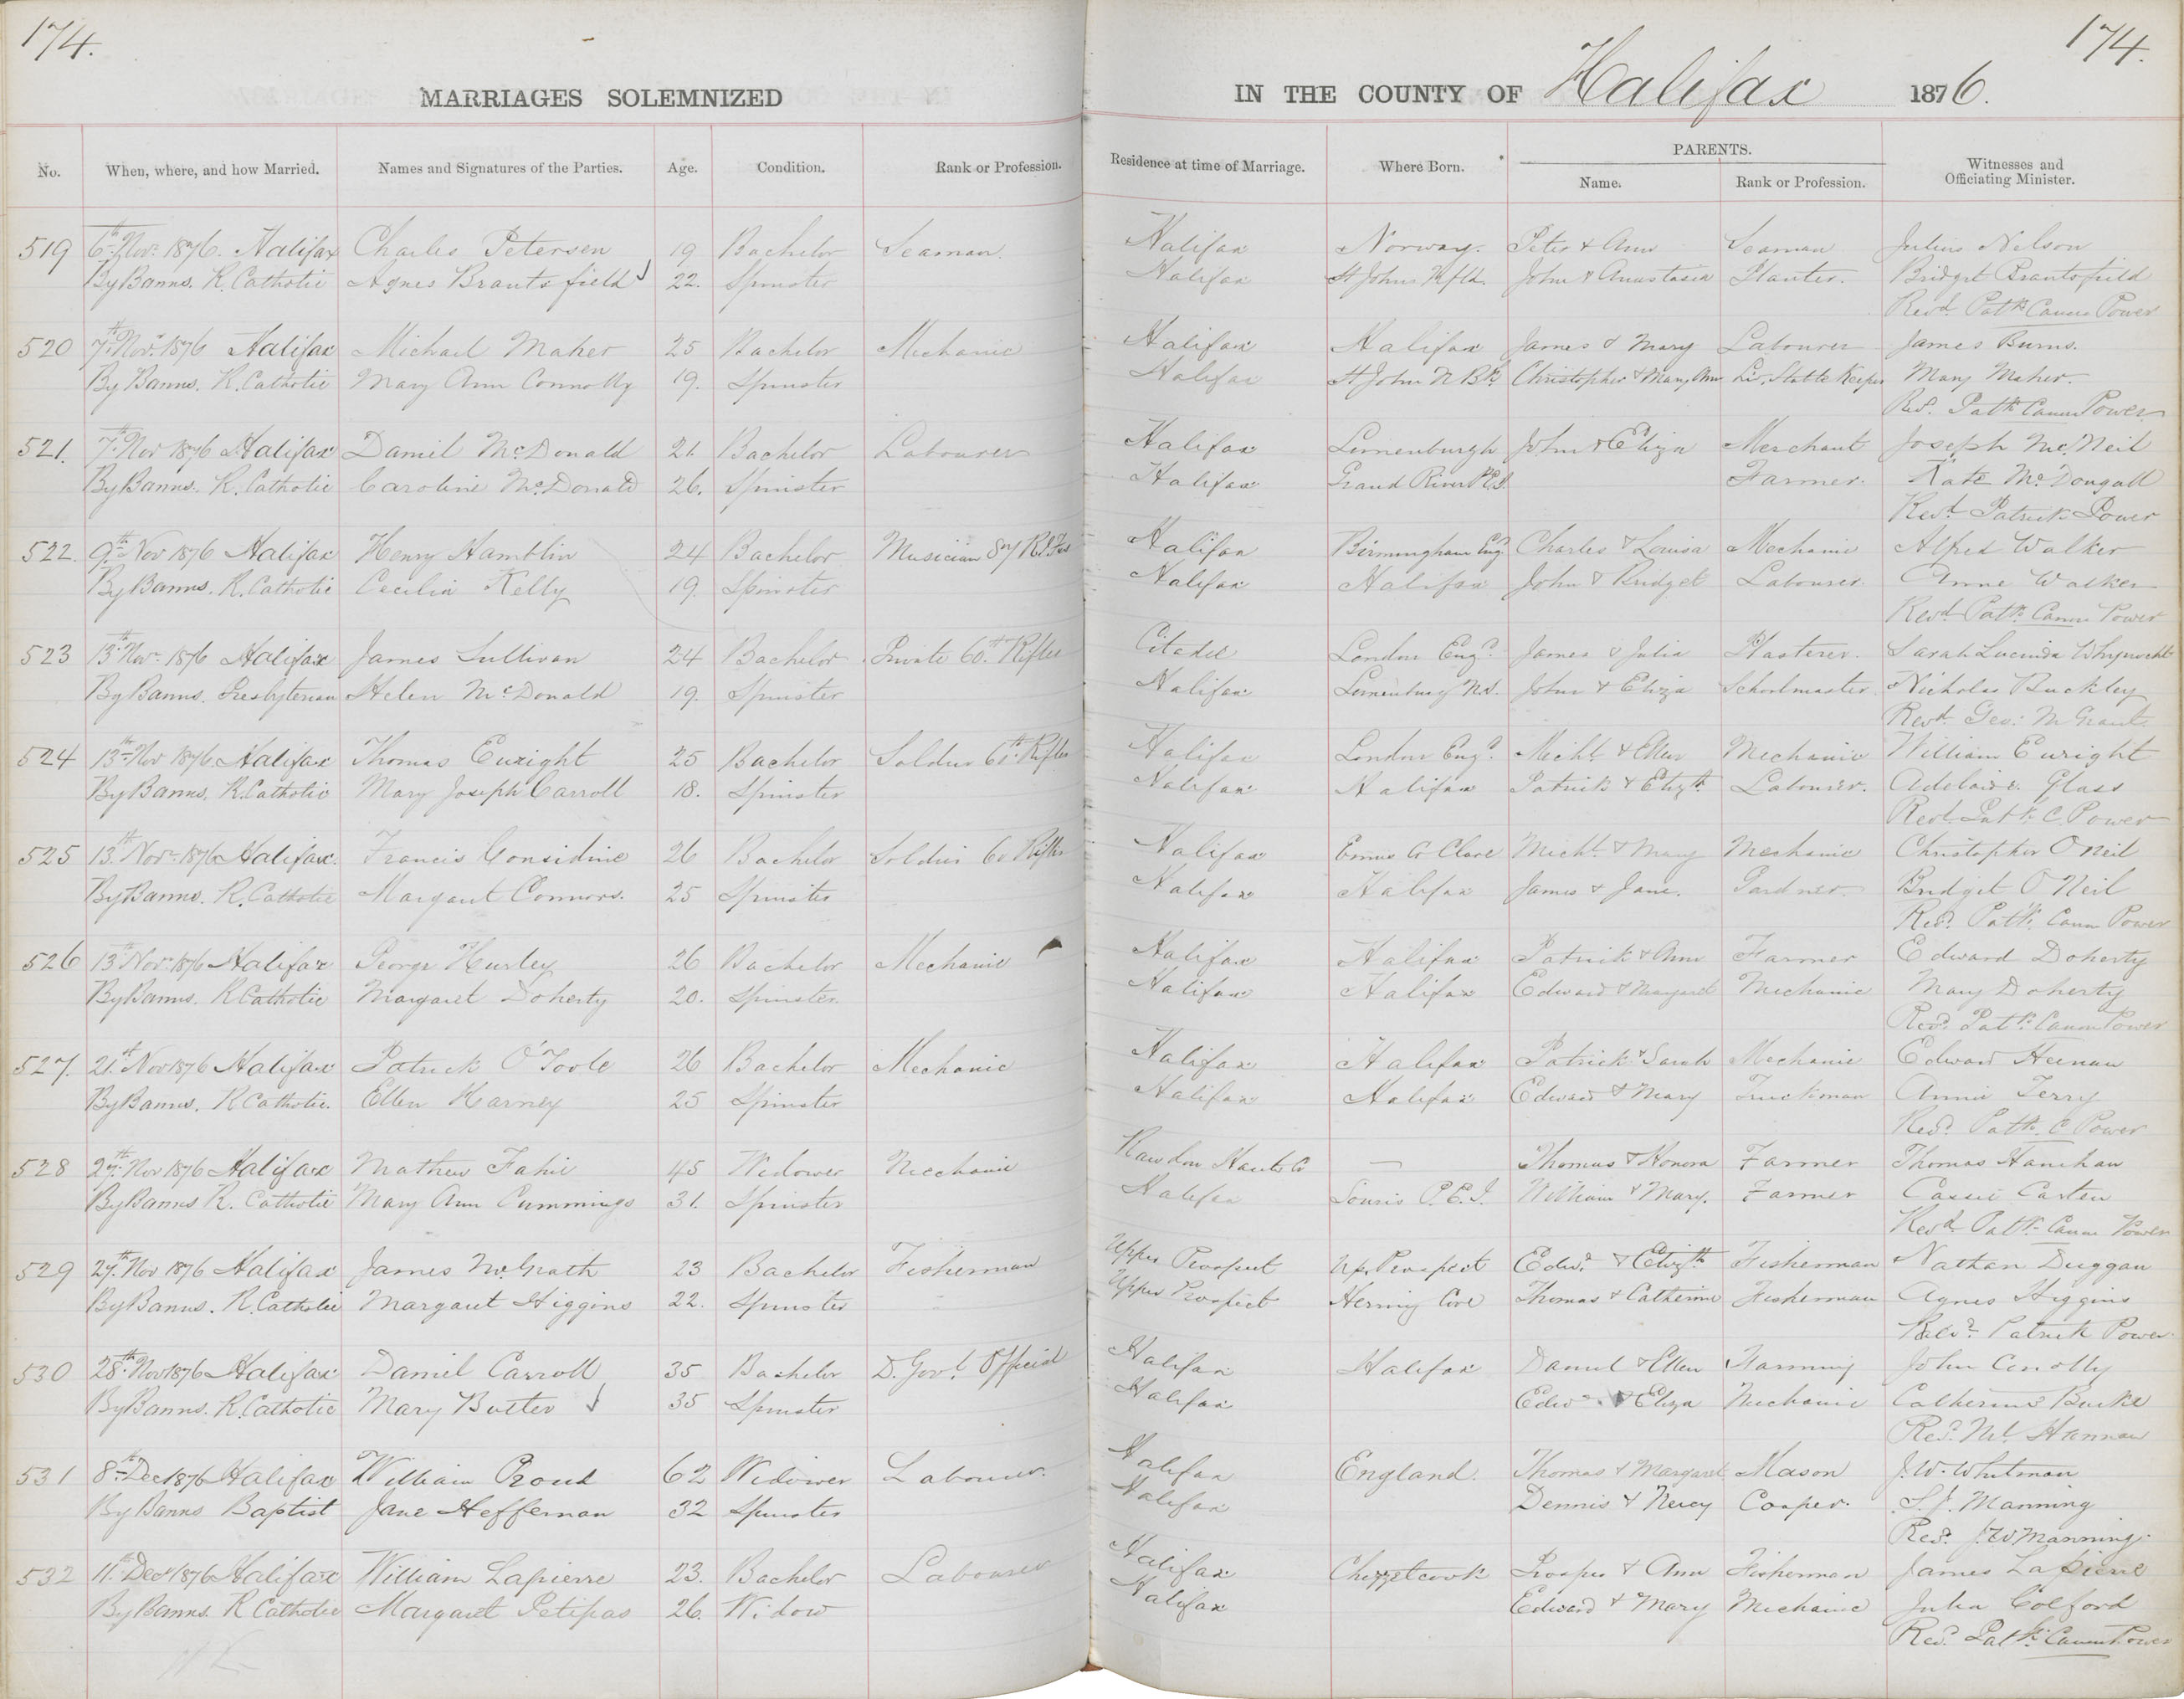 174.
174.
MARRIAGES SOLEMNIZED
IN THE COUNTY OF Halifax 1876.
No. When, where, and how Married. Names and Signatures of the Parties. Age. Condition. Rank or Profession. Residence at time of Marriage. Where Born. PARENTS. Name. Rank or Profession. Witnesses and Officiating Minister.
519 6th Novr 1876. Halifax Charles Petersen 19 Bachelor Seaman. Halifax Norway. Peter & Ann Seaman Julius Nelson
By Banns. R. Catholic Agnes Brantsfield 22. Spinster Halifax St Johns Nfld. John & Anastasia Planter. Bridget Brantsfield
Revd Patk Canon Power
520 7th Novr 1876 Halifax Michael Maher 25 Bachelor Mechanic Halifax Halifax James & Mary Labourer James Burns.
By Banns. R. Catholic Mary Ann Connolly 19. Spinster Halifax St John N Bk Christopher & Mary Ann Liv. Stable Keeper Mary Maher.
Rev. Patk Canon Power
521. 7th Nov 1876 Halifax Daniel McDonald 21 Bachelor Labourer Halifax Lunenburgh John & Eliza Merchant Joseph McNeil
By Banns. R. Catholic Caroline McDonald 26. Spinster Halifax Grand River PEI Farmer. Kate McDougall
Revd Patrick Power
522. 9th Nov 1876 Halifax Henry Hamblin 24 Bachelor Musician 87 Rl Fus Halifax Birmingham Eng Charles & Louisa Mechanic Alfred Walker
By Banns. R. Catholic Cecilia Kelly 19. Spinster Halifax Halifax John & Bridget Labourer. Anne Walker
Revd Patk Canon Power
523 13th Novr 1876 Halifax James Sullivan 24 Bachelor Private 60th Rifles Citadel London Engd James & Julia Plasterer. Sarah Lucinda Whynocht
By Banns. Presbyterian Helen McDonald 19. Spinster Halifax Lunenburg N.S. John & Eliza Schoolmaster Nicholas Buckley
Revd Geo: M Grant
524 13th Nov 1876. Halifax Thomas Enright 25 Bachelor Soldier 60th Rifles Halifax London Engd Michl & Ellen Mechanic William Enright
By Banns. R. Catholic Mary Joseph Carroll 18. Spinster Halifax Halifax Patrick & Elizth Labourer. Adelaide Glass
Revd Patk C Power
525 13th Novr 1876 Halifax. Francis Considine 26 Bachelor Soldier 60 Rifles Halifax Ennis Co Clare Michl & Mary Mechanic Christopher O Neil
By Banns. R. Catholic Margaret Connors. 25 Spinster Halifax Halifax James & Jane. Gardner. Bridget O Neil
Revd Patk Canon Power
526 13th Novr 1876 Halifax George Hurley 26 Bachelor Mechanic Halifax Halifax Patrick & Ann Farmer Edward Doherty
By Banns. R Catholic Margaret Doherty 20. Spinster. Halifax Halifax Edward & Margaret Mechanic Mary Doherty
Revd Patk Canon Power
527. 21st Nov 1876 Halifax Patrick O'Toole 26 Bachelor Mechanic Halifax Halifax Patrick & Sarah Mechanic Edward Heenan
By Banns. R Catholic. Ellen Harney 25 Spinster Halifax Halifax Edward & Mary Truckman Annie Terry
Revd Patk C Power
528 27th Nov 1876 Halifax Mathew Fahie 45 Widower Mechanic Rawdon Hants Co — Thomas & Honora Farmer Thomas Hanihan
By Banns R. Catholic Mary Ann Cummings 31. Spinster Halifax Souris P.E.I. William & Mary. Farmer Cassie Carten
Revd Patk Canon Power
529 27th Nov 1876 Halifax James McGrath 23 Bachelor Fisherman Upper Prospect Up. Prospect Edwd & Elizth Fisherman Nathan Duggan
By Banns. R. Catholic Margaret Higgins 22. Spinster Upper Prospect Herring Cove Thomas & Catherine Fisherman Agnes Higgins
Revd Patrick Power
530 28th Nov 1876 Halifax Daniel Carroll 35 Bachelor D. Govt Official Halifax Halifax Daniel & Ellen Farming John Conolly
By Banns. R. Catholic Mary Butler 35 Spinster Halifax Edwd & Eliza Mechanic Catherine Burke
Revd Ml Hannan
531 8th Dec 1876 Halifax William Proud 62 Widower Labourer. Halifax England. Thomas & Margaret Mason J. W. Whitman
By Banns Baptist Jane Heffernan 32 Spinster Halifax Dennis & Nercy Cooper. S. J. Manning
Revd J. W Manning.
532 11th Decr 1876 Halifax William Lapierre 23. Bachelor Labourer Halifax Chezzetcook Prosper & Ann Fisherman James LaPierre
By Banns. R Catholic Margaret Petipas 26. Widow Halifax Edward & Mary Mechanic Julia Colford
Revd Patk Canon Power